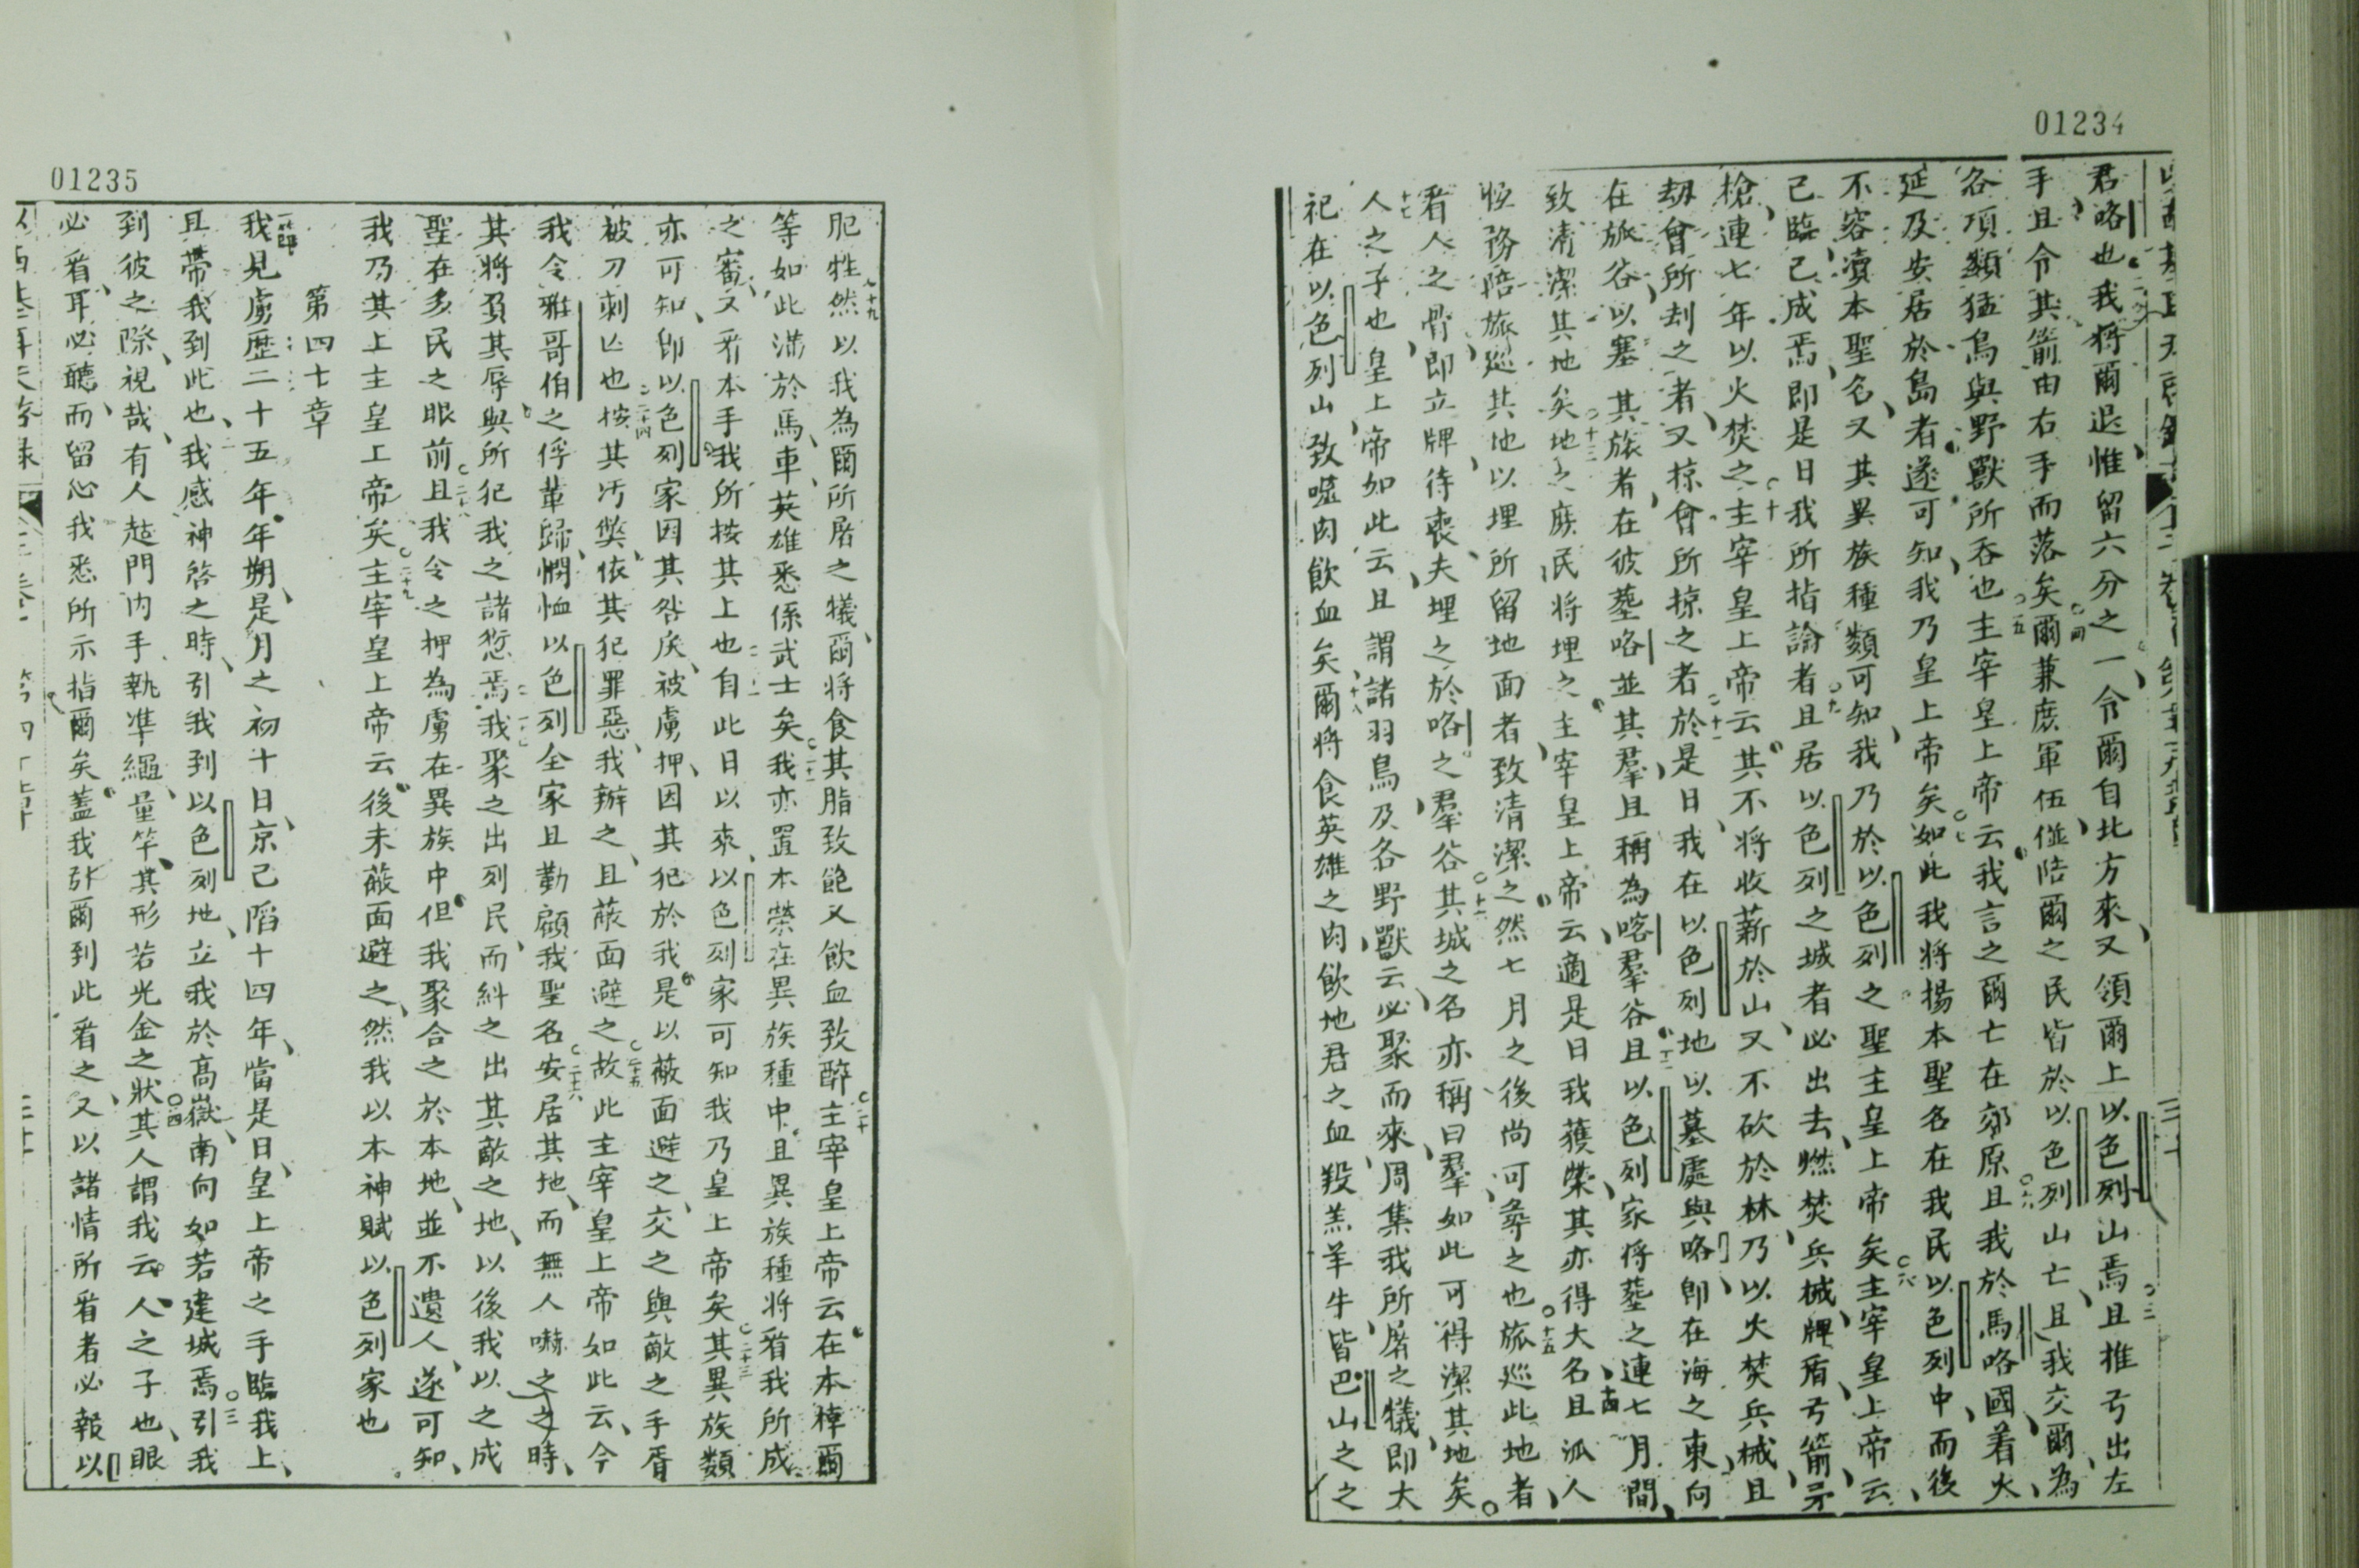 01234
君咯也我將爾退惟留六分之一令爾自北方來又領爾上以色列山焉且推弓出左
手且令其箭由右手而落矣爾兼庶軍伍偕陪爾之民皆於以色列山亡且我交爾為
各項類猛鳥與野獸所吞也主宰皇上帝云我言之爾亡在郊原且我於馬咯國着火
延及安居於島者遂可知我乃皇上帝矣如此我將揚本聖名在我民以色列中而後
不容瀆本聖名又其異族種類可知我乃於以色列之聖主皇上帝矣主宰皇上帝云
己臨己成焉即是日我所指論者且居以色列之城者必出去燃焚兵械牌盾弓箭矛
槍連七年以火焚之主宰皇上帝云其不將收薪於山又不砍於林乃以火焚兵械且
劫會所刦之者又掠會所掠之者於是日我在以色列地以墓處與咯即在海之東向
在旅谷以塞其旅者在彼葬咯並其羣且稱為喀羣谷且以色列家將葬之連七月間
致清潔其地矣地之庶民將埋之主宰皇上帝云適是日我獲榮其亦得大名且派人
恆務陪旅巡其地以埋所留地面者致清潔之然七月之後尚可尋之也旅巡此地者
看人之骨即立牌待喪夫埋之於咯之羣谷其城之名亦稱曰羣如此可得潔其地矣
人之子也皇上帝如此云且謂諸羽鳥及各野獸云必聚而來周集我所屠之犧即大
祀在以色列山致噬肉飲血矣爾將食英雄之肉飲地君之血羖羔羊牛皆巴山之之
01235
肥牲然以我為爾所屠之犧爾將食其脂致飽又飲血致醉主宰皇上帝云在本棹爾
等如此滿於馬車英雄悉係武士矣我亦置本榮在異族種中且異族種將看我所成
之審又看本手我所按其上也自此日以來以色列家可知我乃皇上帝矣其異族類
亦可知即以色列家因其咎戾被虜押因其犯於我是以蔽面避之交之與敵之手胥
被刀刺亡也按其汚獘依其犯罪惡我辦之且蔽面避之故此主宰皇上帝如此云今
我令雅哥伯之俘輩歸憫恤以色列全家且勤顧我聖名安居其地而無人嚇之之時
其將負其辱與所犯我之諸愆焉我聚之出列民而糾之出其敵之地以後我以之成
聖在多民之眼前且我令之押為虜在異族中但我聚合之於本地並不遺人遂可知
我乃其上主皇上帝矣主宰皇上帝云後未蔽面避之然我以本神賦以色列家也
第四十章
我見虜歷二十五年年朔是月之初十日京己陷十四年當是日皇上帝之手臨我上
且帶我到此也我感神啓之時引我到以色列地立我於高嶽南向如若建城焉引我
到彼之際視哉有人趂門內手執準繩量竿其形若光金之狀其人謂我云人之子也眼
必看耳必聽而留心我悉所示指爾矣蓋我引爾到此看之又以諸情所看者必報以